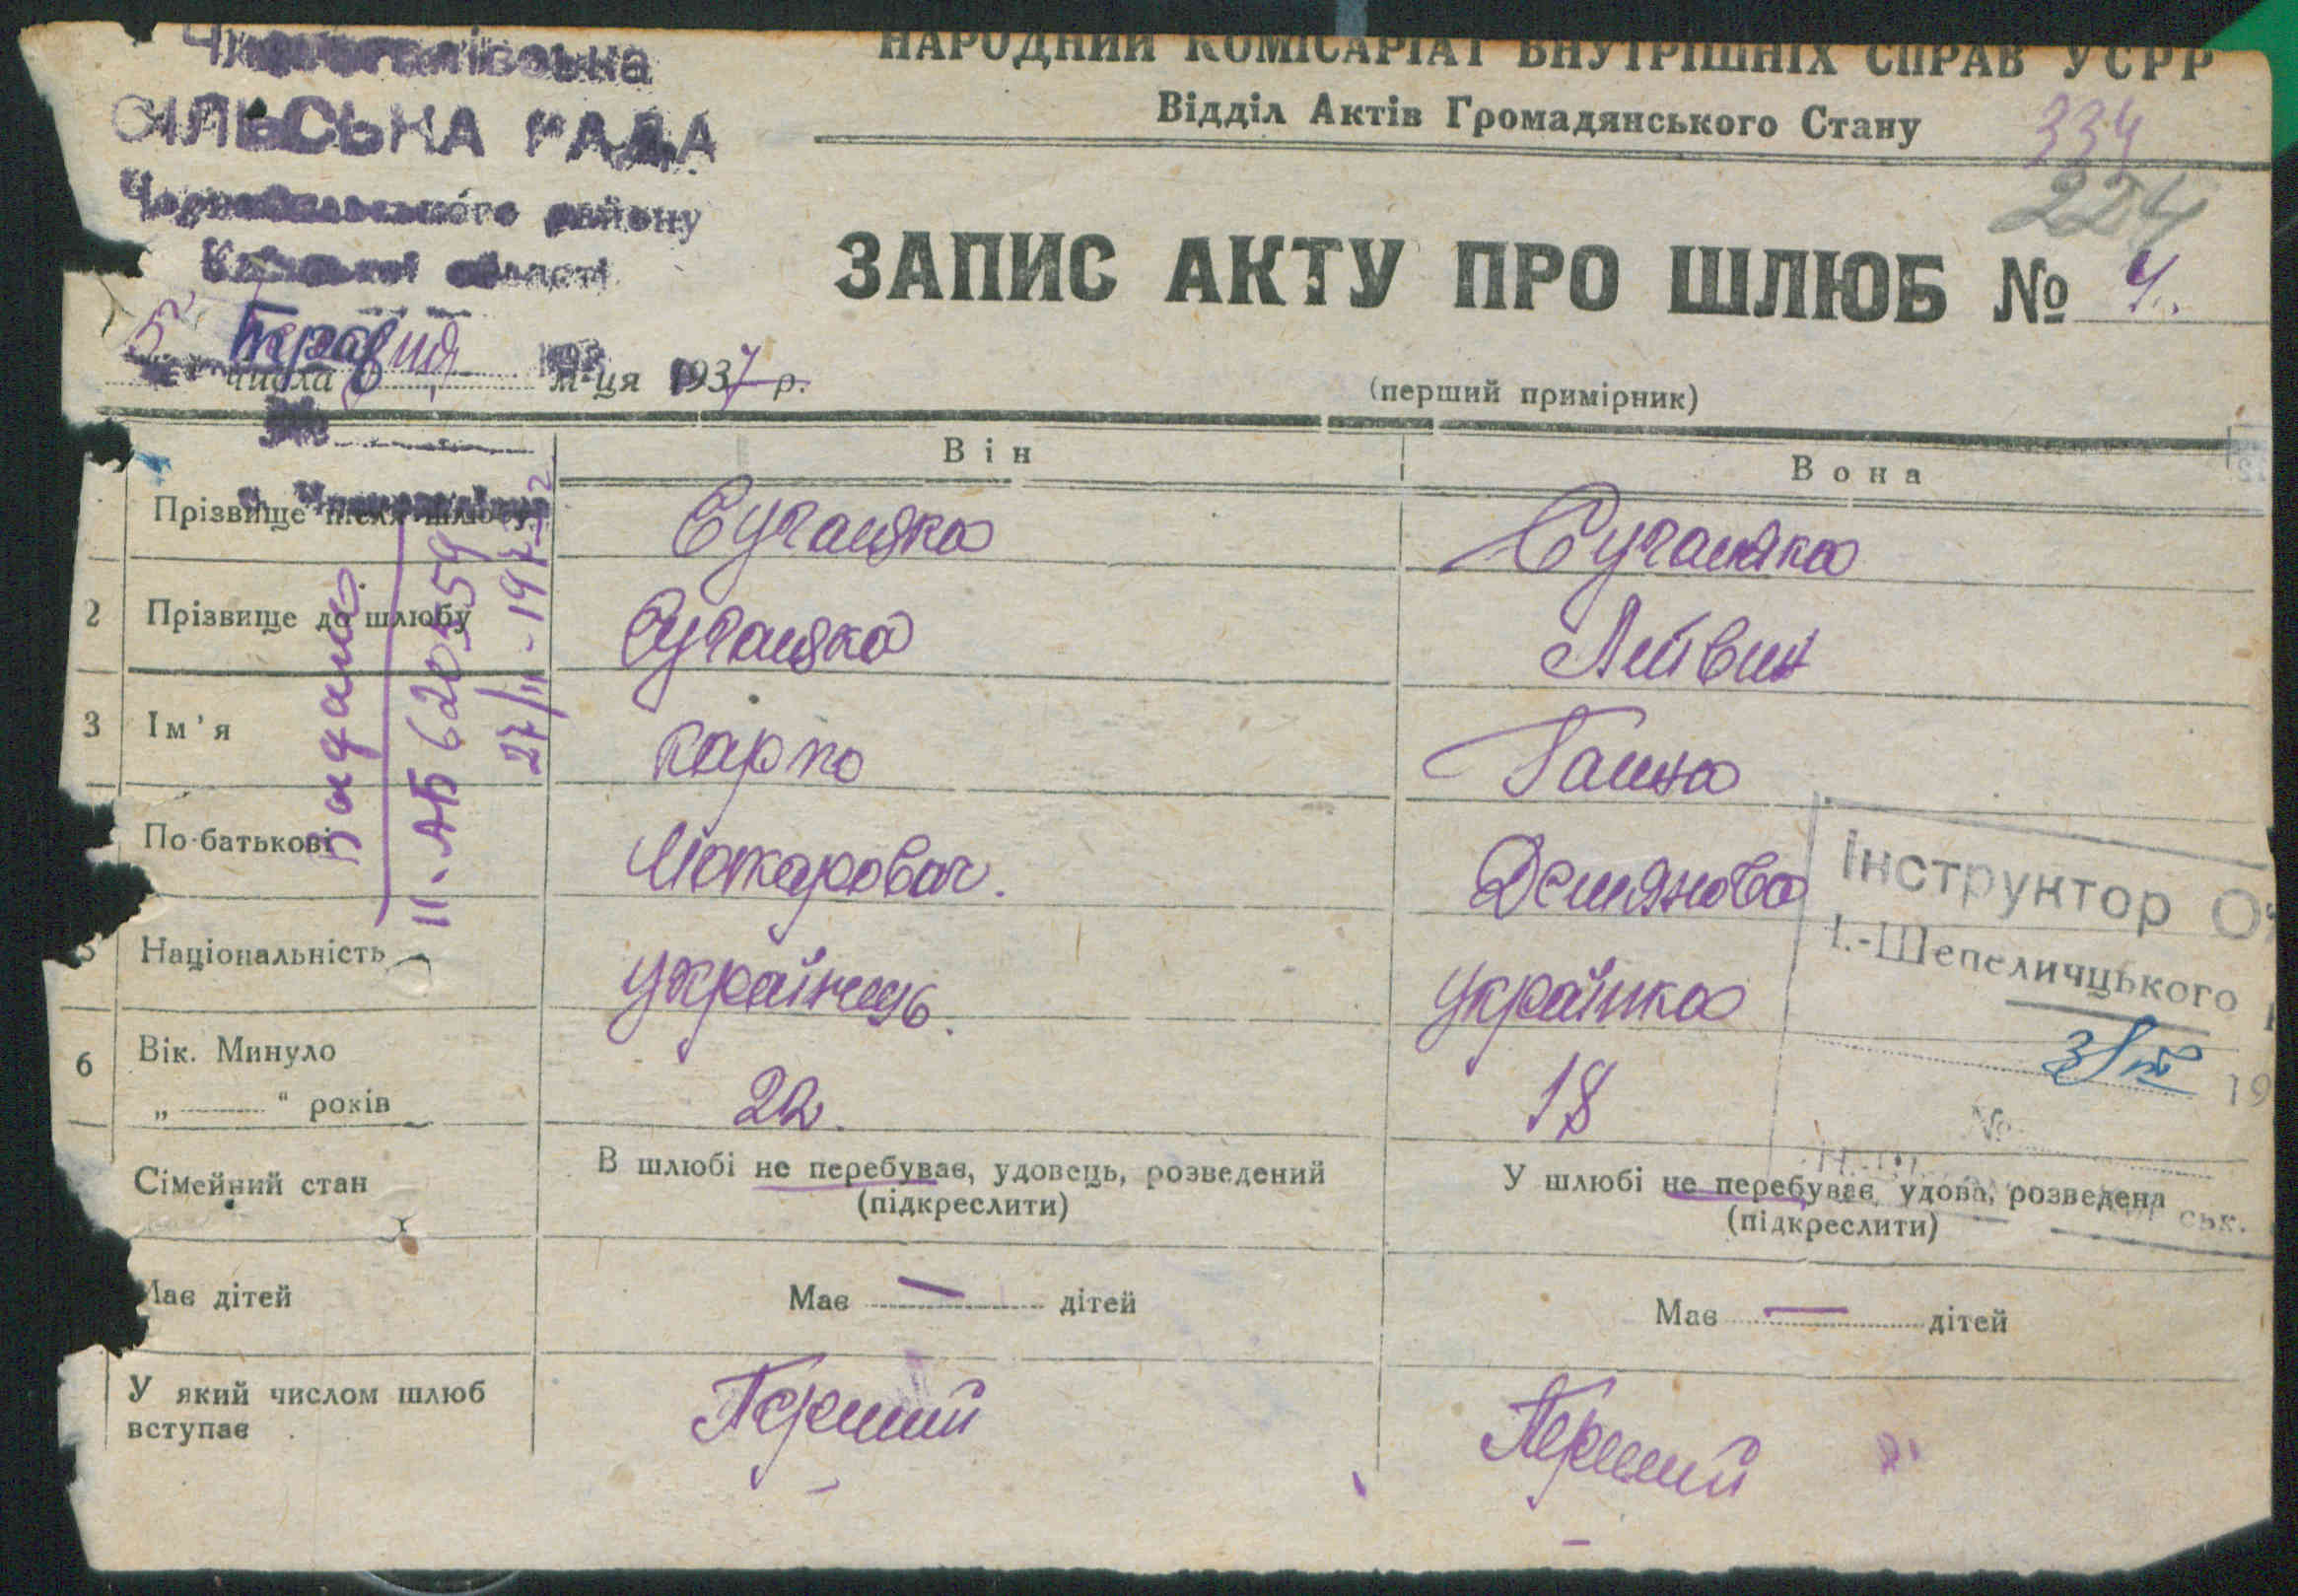 СІЛЬСЬКА РАДА
району
області
НАРОДНИЙ КОМІСАРІАТ ВНУТРІШНІХ СПРАВ УСРР
Відділ Актів Громадянського Стану
334
224
ЗАПИС АКТУ ПРО ШЛЮБ № 4.
5 Травня
числа м-ця 1937 р.
(перший примірник)
Він
Вона
Прізвище після шлюбу
2 Прізвище до шлюбу
Литвин
3 Ім'я
Карпо
Ганна
По-батькові
Макарович.
Демянова
5 Національність
українець.
українка
6 Вік. Минуло
„ “ років
22.
18
Сімейний стан
В шлюбі не перебуває, удовець, розведений
(підкреслити)
У шлюбі не перебуває, удова, розведена
(підкреслити)
Має дітей
Має — дітей
Має — дітей
У який числом шлюб
вступає
Перший
Перший
Видано
II-АБ 620559
27/II-1973
Інструктор
І.-Шепеличцького
19
№
ськ.